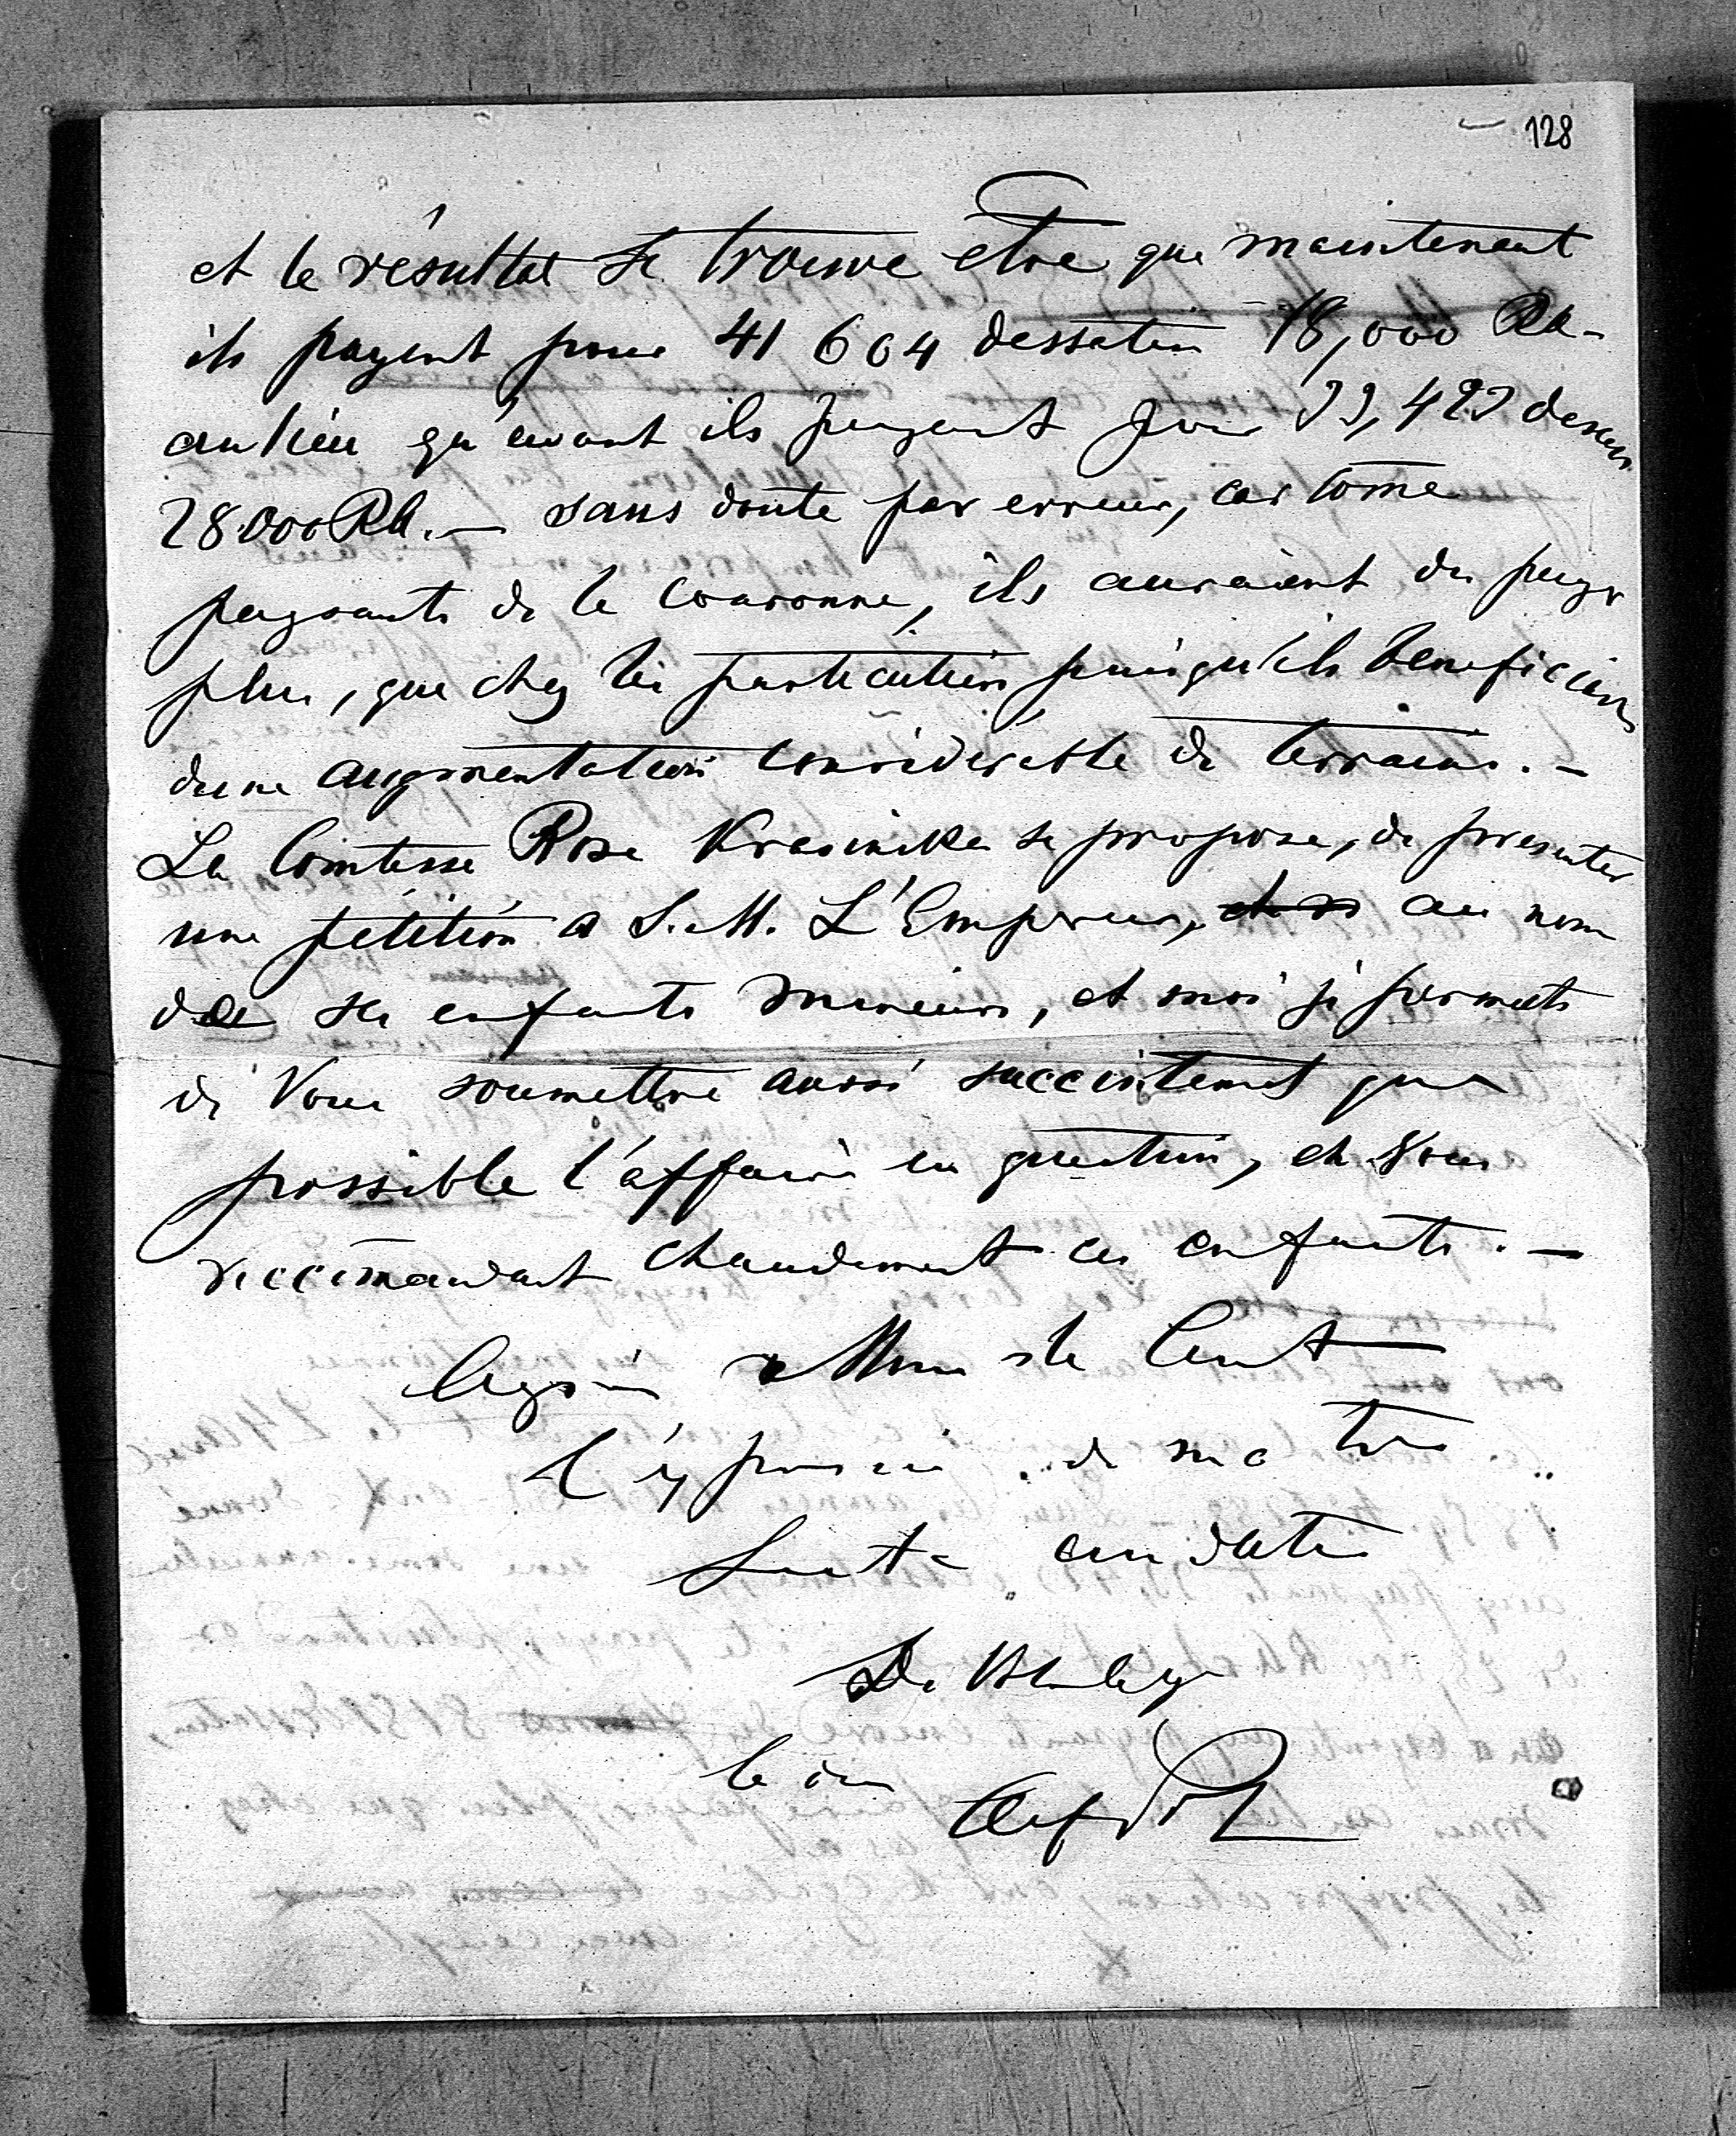 128
et le résultat se trouve etre que maintenant
ils payent pour 41 604 dessatin 18,000 Rb -
au lieu qu'avant ils payent pour 33,423
28000 Rb. — sans doute par erreur, car come
paysants de la Couronne, ils auraient du payr
plus, que chez les particuliers puisqu'ils beneficient
dune augmentation considerable de terrains. -
La Comtesse Rose Krasinska se propose, de presenter
une petition a S. M. L'Empreur, au nom
de ses enfants mineurs, et moi je permets
de Vous soumettre aussi succintement que
possible l'affaire en question, et Vous
reccomandant chaudement ces enfants. —
Agréé Mon Comt
l'expression de ma
haute
De
le